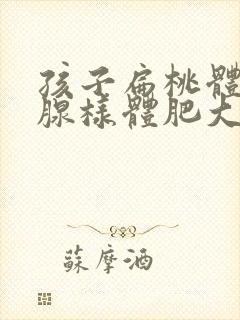 孩子扁桃體
腺樣體肥大
蘇摩酒